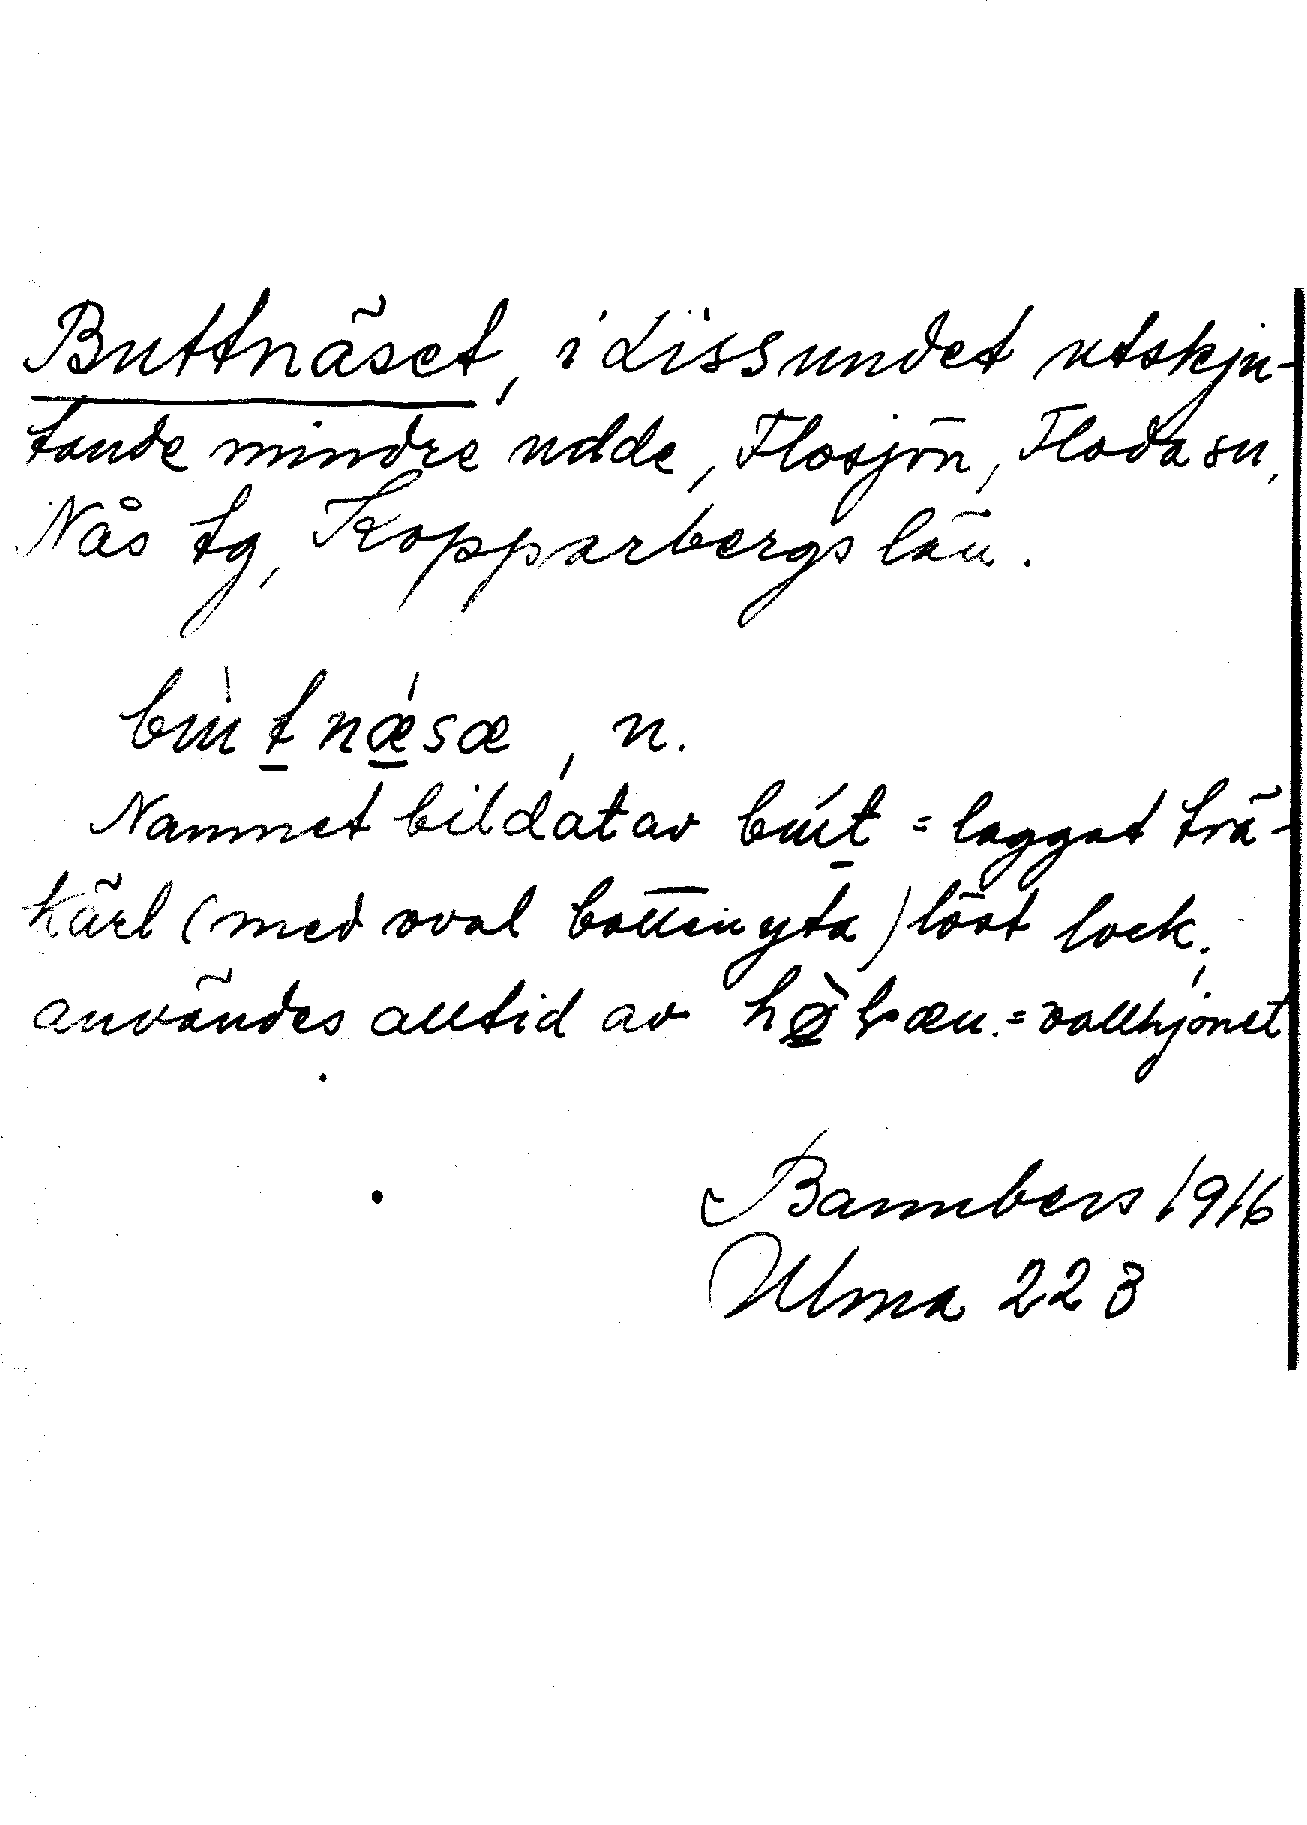 Buttnäset, i Lissundet utskju-
tande mindre udde, Flosjön, Floda sn,
Nås tg, Kopparbergs län.
bu̇tnæ̇sæ, n.
Namnet bildat av bu̇t = laggat trä-
kärl (med oval bottenyta) löst lock;
användes alltid av = vallhjonet
Bannbers 1916
Ulma 223